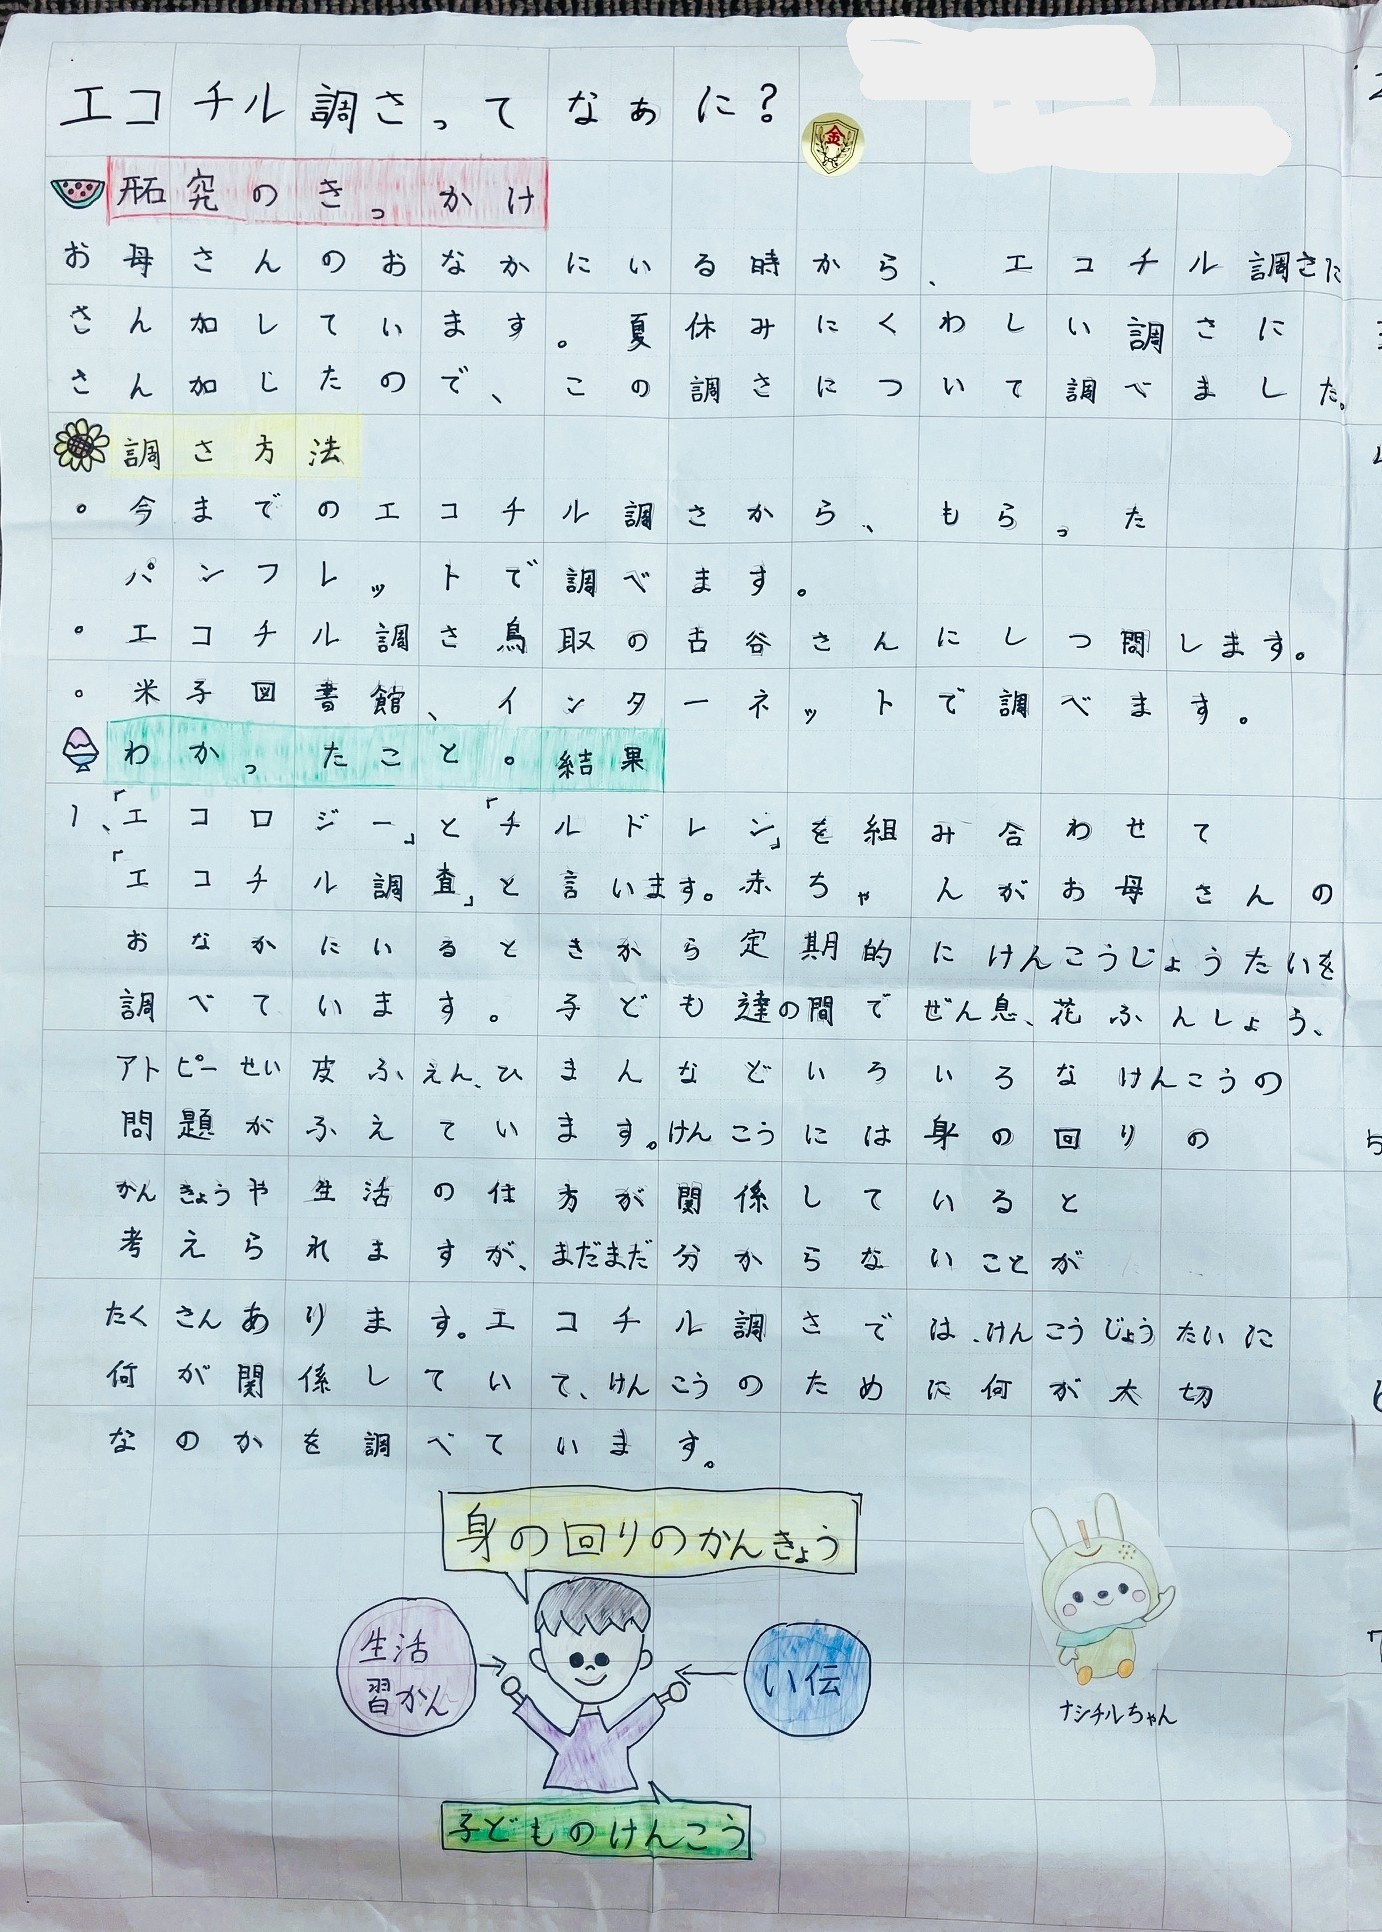 エコチル調さってなぁに?
金
研究のきっかけ
お母さんのおなかにいる時から、エコチル調さに
さん加しています。夏休みにくわしい調さに
さん加したので、この調さについて調べました。
調さ方法
。今までのエコチル調さから、もらった
パンフレットで調べます。
。エコチル調さ鳥取の古谷さんにしつ問します。
。米子図書館、インターネットで調べます。
わかったこと。結果
1、「エコロジー」と「チルドレン」を組み合わせて
「エコチル調査」と言います。赤ちゃんがお母さんの
おなかにいるときから定期的にけんこうじょうたいを
調べています。子ども達の間でぜん息、花ふんしょう、
アトピーせい皮ふえん、ひまんなどいろいろなけんこうの
問題がふえています。けんこうには身の回りの
かんきょうや生活の仕方が関係していると
考えられますが、まだまだ分からないことが
たくさんあります。エコチル調さでは、けんこうじょうたいに
何が関係していて、けんこうのために何が大切
なのかを調べています。
身の回りのかんきょう
生活
習かん
い伝
ナシチルちゃん
子どものけんこう